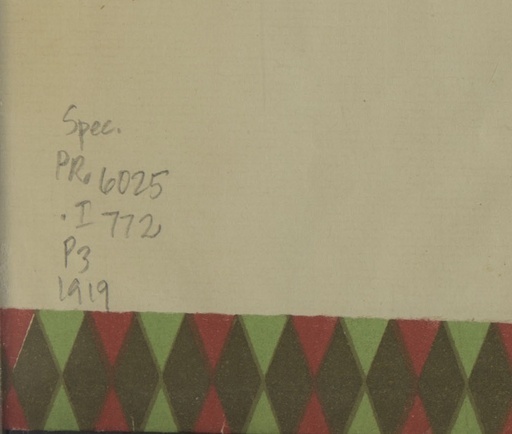 Spec.
PR. 6025
.I 772
P3
1919